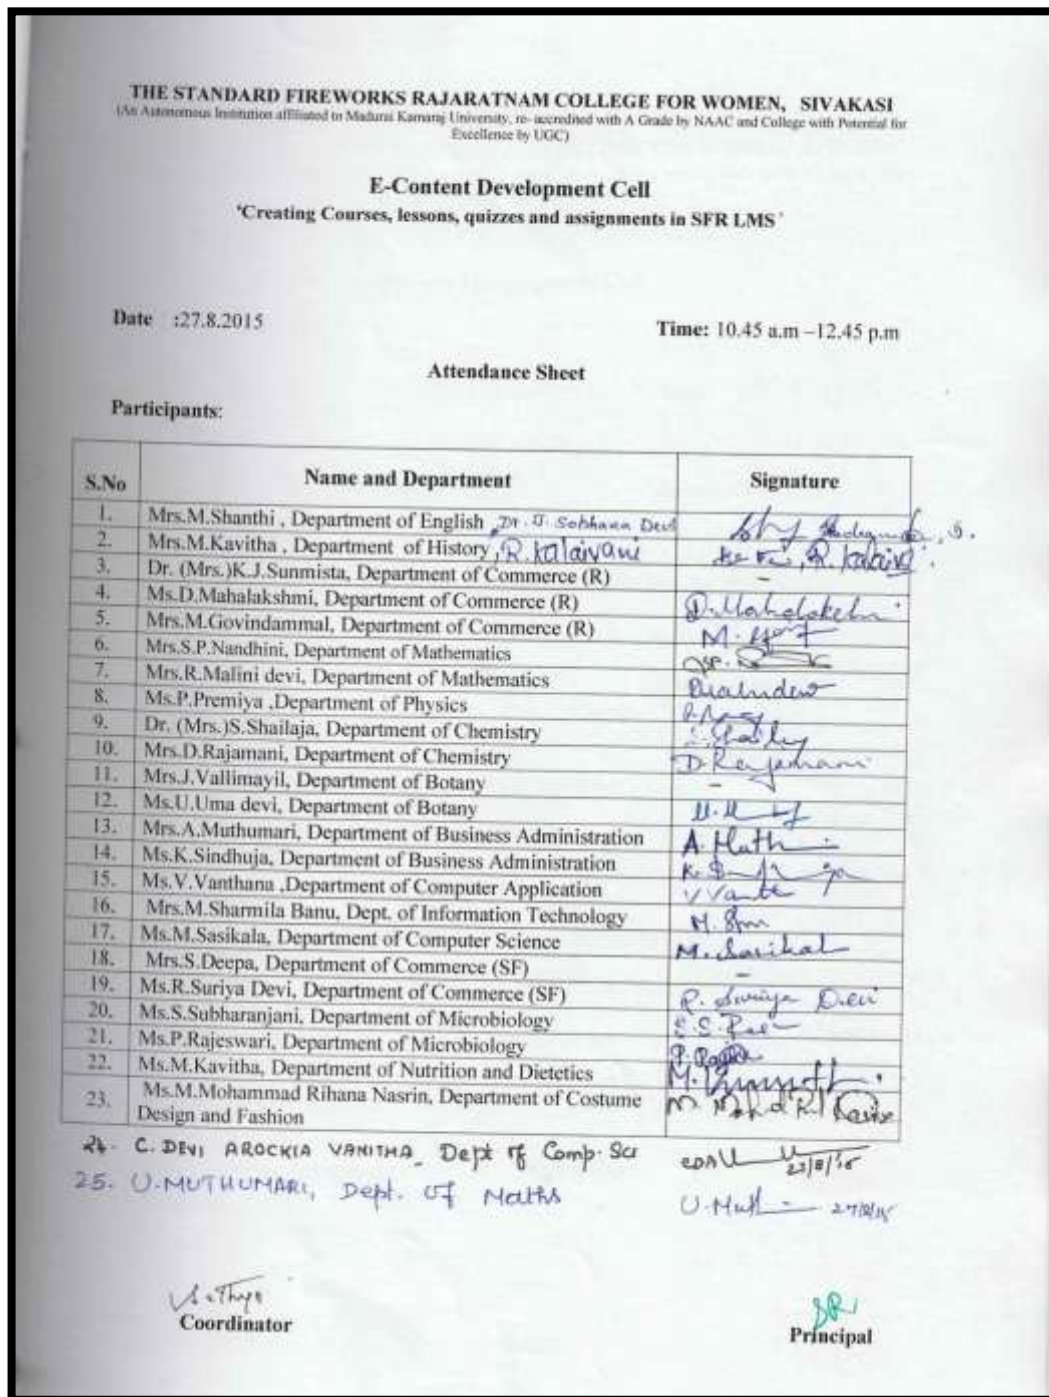 THE STANDARD FIREWORKS RAJARATNAM COLLEGE FOR WOMEN, SIVAKASI
(An Autonomous Institution affiliated to Madurai Kamaraj University, re-accredited with A Grade by NAAC and College with Potential for
Excellence by UGC)
E-Content Development Cell
'Creating Courses, lessons, quizzes and assignments in SFR LMS'
Date :27.8.2015 Time: 10.45 a.m –12.45 p.m
Attendance Sheet
Participants:
S.No Name and Department Signature
1. Mrs.M.Shanthi , Department of English, Dr. J. Sobhana Devi
2. Mrs.M.Kavitha , Department of History, R. Kalaivani R. Kalaivani
3. Dr. (Mrs.)K.J.Sunmista, Department of Commerce (R) –
4. Ms.D.Mahalakshmi, Department of Commerce (R) D. Mahalakshmi
5. Mrs.M.Govindammal, Department of Commerce (R) M.
6. Mrs.S.P.Nandhini, Department of Mathematics
7. Mrs.R.Malini devi, Department of Mathematics
8. Ms.P.Premiya ,Department of Physics
9. Dr. (Mrs.)S.Shailaja, Department of Chemistry
10. Mrs.D.Rajamani, Department of Chemistry D. Rajamani
11. Mrs.J.Vallimayil, Department of Botany –
12. Ms.U.Uma devi, Department of Botany
13. Mrs.A.Muthumari, Department of Business Administration A. Muth
14. Ms.K.Sindhuja, Department of Business Administration
15. Ms.V.Vanthana ,Department of Computer Application V Vanth
16. Mrs.M.Sharmila Banu, Dept. of Information Technology
17. Ms.M.Sasikala, Department of Computer Science M. Sasikal
18. Mrs.S.Deepa, Department of Commerce (SF) –
19. Ms.R.Suriya Devi, Department of Commerce (SF) R. Suriya Devi
20. Ms.S.Subharanjani, Department of Microbiology
21. Ms.P.Rajeswari, Department of Microbiology
22. Ms.M.Kavitha, Department of Nutrition and Dietetics
23. Ms.M.Mohammad Rihana Nasrin, Department of Costume
Design and Fashion
24. C. DEVI AROCKIA VANITHA, Dept of Comp. Sci
25. U.MUTHUMARI, Dept. of Maths U. Muth 27/8/15
Coordinator Principal